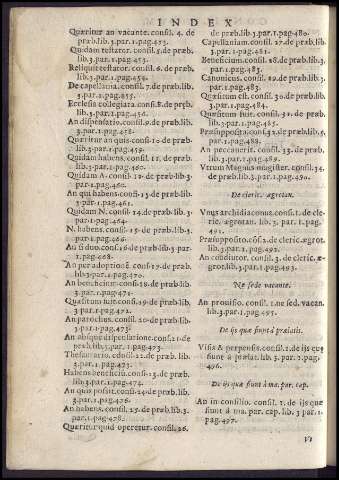 INDEX
Quæritur an vacante. consil. 4. de
præb. lib. 3. par. 1. pag. 453.
Quidam testator. consil. 5. de præb.
lib. 3. par. 1. pag. 453.
Reliquit testator. consil. 6. de præb.
lib. 3. par. 1. pag. 454.
De capellania. consil. 7. de præb. lib.
3. par. 1. pag. 455.
Ecclesia collegiata. consil. 8. de præb.
lib. 3. par. 1. pag. 456.
An dispensatio. consil. 9. de præb. lib.
3. par. 1. pag. 458.
Quæritur an quis. consil. 10. de præb.
lib. 3. par. 1. pag. 460.
Quidam habens. consil. 11. de præb.
lib. 3. par. 1. pag. 460.
Quidam A. consil. 12. de præb. lib. 3.
par. 1. pag. 460.
An qui habens consil. 13. de præb. lib.
3. par. 1. pag. 461.
Quidam N. consil. 14. de præb. lib. 3.
par. 1. pag. 464.
N. habens. consil. 15. de præb. lib. 3.
par. 1. pag. 466.
An si duo. consil. 16. de præb. lib. 3. par.
1. pag. 468.
An per adoptionē. consil. 17. de præb.
lib. 3. par. 1. pag. 470.
An beneficium. consil. 18. de præb. lib.
3. par. 1. pag. 472.
Quæsitum fuit. consil. 19. de præb. lib.
3. par. 1. pag. 472.
An parochus. consil. 20. de præb. lib.
3. par. 1. pag. 473.
An absque dispensatione. cons. 21. de
præb. lib. 3. par. 1. pag. 473.
Thesaurario. consil. 22. de præb. lib.
3. par. 1. pag. 473.
Habens beneficiū. consil. 23. de præb.
lib. 3. par. 1. pag. 474.
An quis possit. consil. 24. de præb. lib.
3. par. 1. pag. 476.
An habens. consil. 25. de præb. lib. 3.
par. 1. pag. 478.
Quæritur quid operetur. consil. 26.
de præb. lib. 3. par. 1. pag. 480.
Capellaniam. consil. 27. de præb. lib.
3. par. 1. pag. 481.
Beneficium. consil. 28. de præb. lib. 3.
par. 1. pag. 483.
Canonicus. consil. 29. de præb. lib. 3.
par. 1. pag. 483.
Quæsitum est. consil. 30. de præb. lib.
3. par. 1. pag. 484.
Quæsitum fuit. consil. 31. de præb.
lib. 3. par. 1. pag. 485.
Præsupposita. consil. 32. de præb. lib. 3.
par. 1. pag. 488.
An vacaueris. consil. 33. de præb. lib.
3. par. 1. pag. 489.
Vtrum Magnus magister. consil. 34.
de præb. lib. 3. par. 1. pag. 490.
De cleric. ægrotan.
Vnus archidiaconus. consil. 1. de cle-
ric. ægrotan. lib. 3. par. 1. pag.
491.
Præsupposito. cōsil. 2. de cleric. ægrot.
lib. 3. par. 1. pag. 492.
An conditur. consil. 3. de cleric. æ-
grot. lib. 3. par. 1. pag. 493.
Ne sede vacante.
An prouisio. consil. 1. ne sed. vacan.
lib. 3. par. 1. pag. 495.
De ijs quæ fiunt à prælatis.
Visa & perpensis. consil. 1. de ijs quæ
fiunt à prælat. lib. 3. par. 1. pag.
496.
De ijs quæ fiunt à ma. par. cap.
An in consilio. consil. 1. de ijs quæ
fiunt à ma. par. cap. lib. 3. par. 1.
pag. 497.